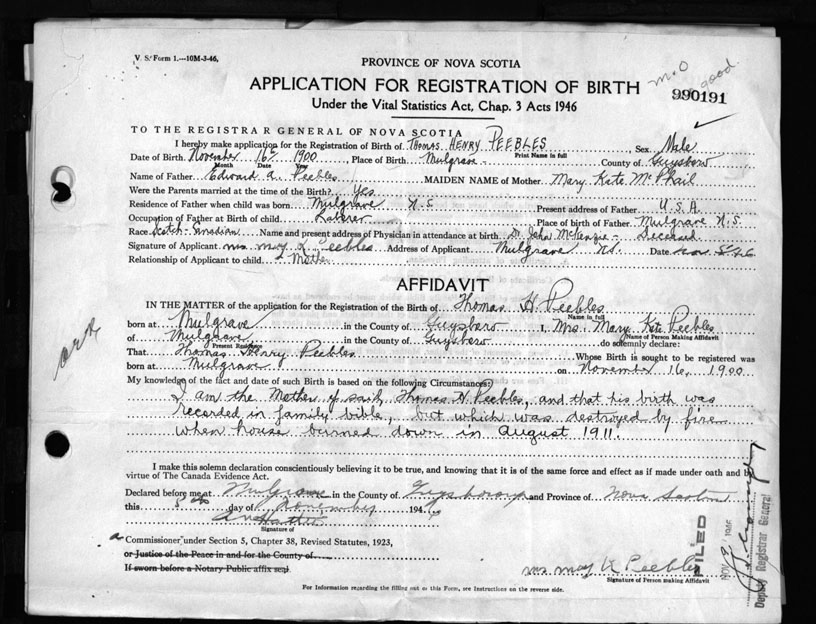 V. S. Form 1.—10M-3-46.
PROVINCE OF NOVA SCOTIA
M.O good
APPLICATION FOR REGISTRATION OF BIRTH
990191
Under the Vital Statistics Act, Chap. 3 Acts 1946
TO THE REGISTRAR GENERAL OF NOVA SCOTIA
I hereby make application for the Registration of Birth of THOMAS HENRY PEEBLES, Sex. Male
Print Name in full
Date of Birth. November 16th 1900, Place of Birth. Mulgrave - County of Guysboro
Month Date Year
Name of Father Edward A. Peebles MAIDEN NAME of Mother Mary Kate McPhail
Were the Parents married at the time of the Birth? Yes
Residence of Father when child was born Mulgrave N.S Present address of Father U.S.A.
Occupation of Father at Birth of child. Laborer Place of birth of Father Mulgrave N.S.
Race Scotch-Canadian Name and present address of Physician in attendance at birth. Dr. John McKenzie - Deceased
Signature of Applicant mrs may K Peebles Address of Applicant Mulgrave NS. Date Nov 5/46
Relationship of Applicant to child. Mother
AFFIDAVIT
IN THE MATTER of the application for the Registration of Birth of Thomas H. Peebles
Name in full
born at Mulgrave in the County of Guysboro I, Mrs. Mary Kate Peebles
Name of Person Making Affidavit
of Mulgrave in the County of Guysboro do solemnly declare:
Present Residence
That Thomas Henry Peebles Whose Birth is sought to be registered was
born at Mulgrave on November 16, 1900
My knowledge of the fact and date of such Birth is based on the following Circumstances:
I am the Mother of said Thomas H. Peebles, and that his birth was
recorded in family bible, but which was destroyed by fire
when house burned down in August 1911.
I make this solemn declaration conscientiously believing it to be true, and knowing that it is of the same force and effect as if made under oath and by
virtue of The Canada Evidence Act.
Declared before me at Mulgrave in the County of Guysborough and Province of Nova Scotia
this 5th day of November 1946
Signature of
a Commissioner under Section 5, Chapter 38, Revised Statutes, 1923,
or Justice of the Peace in and for the County of
If sworn before a Notary Public affix seal.
mrs may K Peebles
Signature of Person making Affidavit
FILED
NOV 1946
Deputy Registrar General
For Information regarding the filling out of this Form, see Instructions on the reverse side.